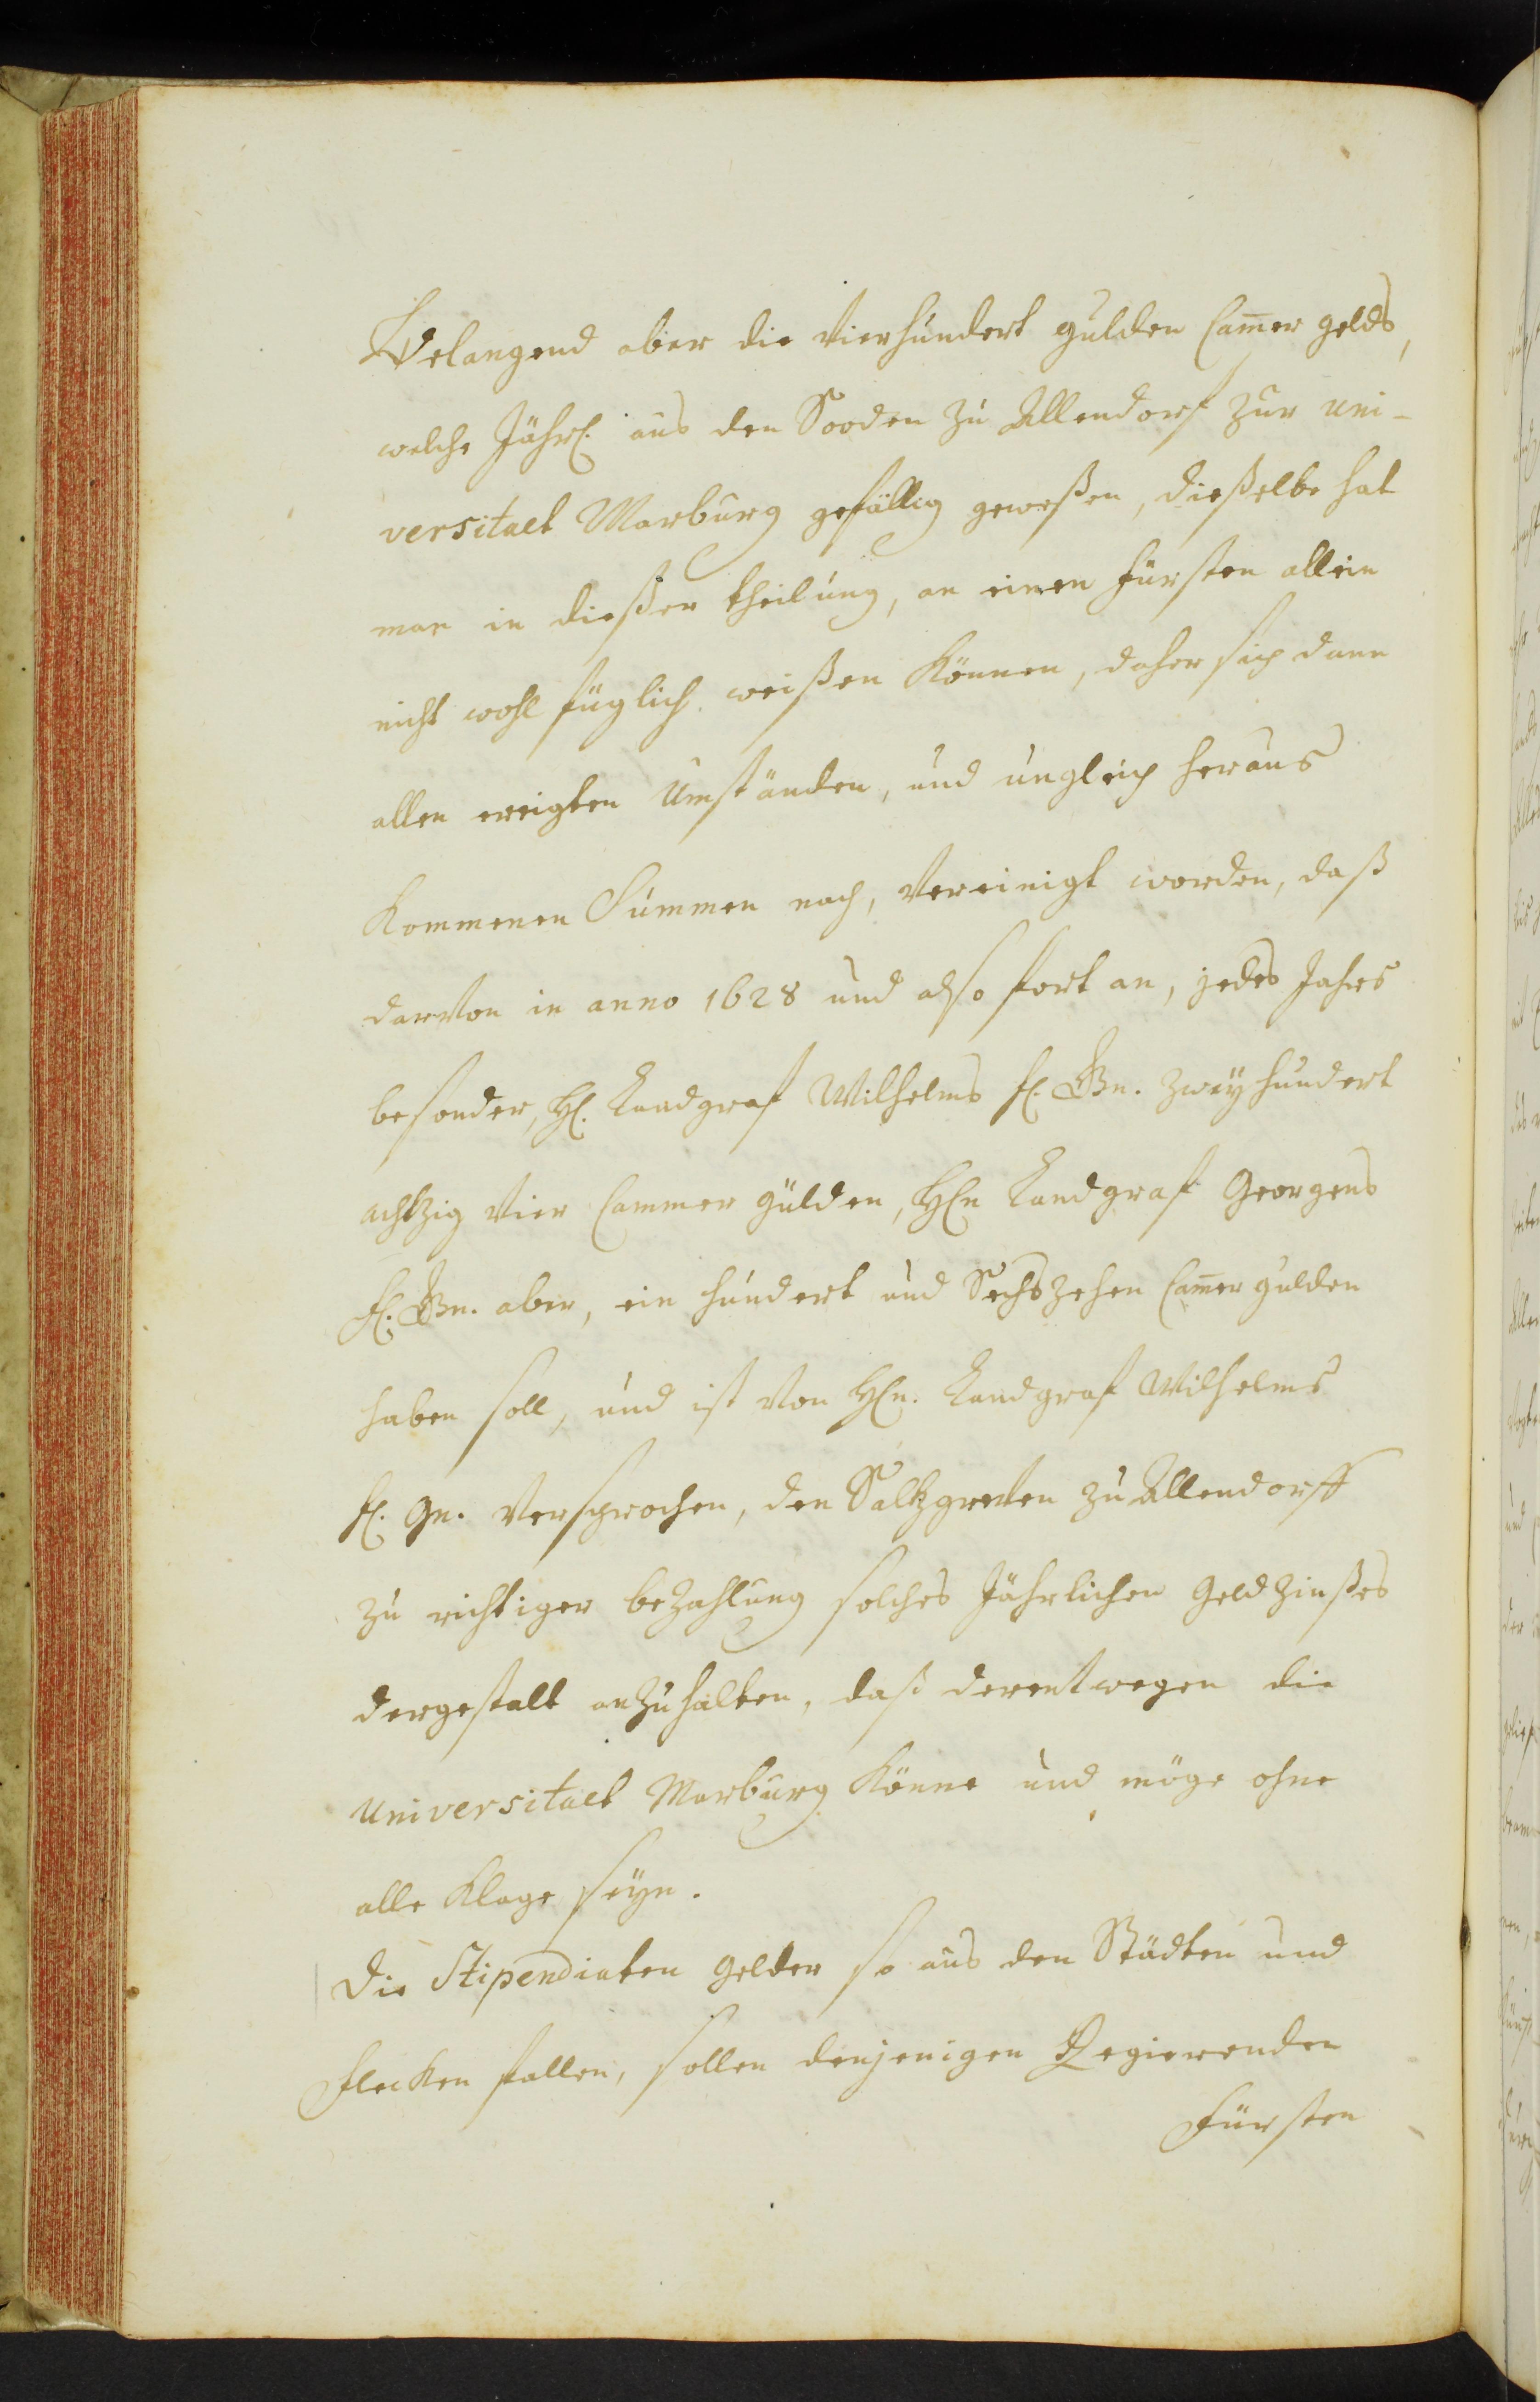 Belangend aber die Vierhundert gulden Cam̄er gelds,
welche Jährl. aus den Sooden zu Allendorf zur uni-
versitaet Marburg gefällig geweßen, dießelbe hat
man in dießer theilung, an einen Fürsten allein
nicht wohl füglich weißen Können, daher sich dann
allen ereigten Umständen, und ungleich heraus
Kommenen Summen nach, Vereinigt worden, daß
darvon in anno 1628 und also fort an, jedes Jahrs
besonder, H. Landgraf Wilhelms f. Gn. zweÿhundert
achtzig vier Cammer gülden, Hn Landgraf Georgens
f. Gn. aber, ein hundert und Sechszehen Cam̄er gulden
haben soll, und ist von Hn. Landgraf Wilhelms
f. Gn. Versprochen, den Saltzgreven zu Allendorff
zu richtiger bezahlung solches Jährlichen Geldzinßes
dergestalt anzuhalten, daß derentwegen die
Universitaet Marburg Könne und möge ohne
alle Klage seÿn.
Die Stipendiaten gelder so aus den Städten und
Flecken fallen, sollen denjenigen Regierenden
Fürsten